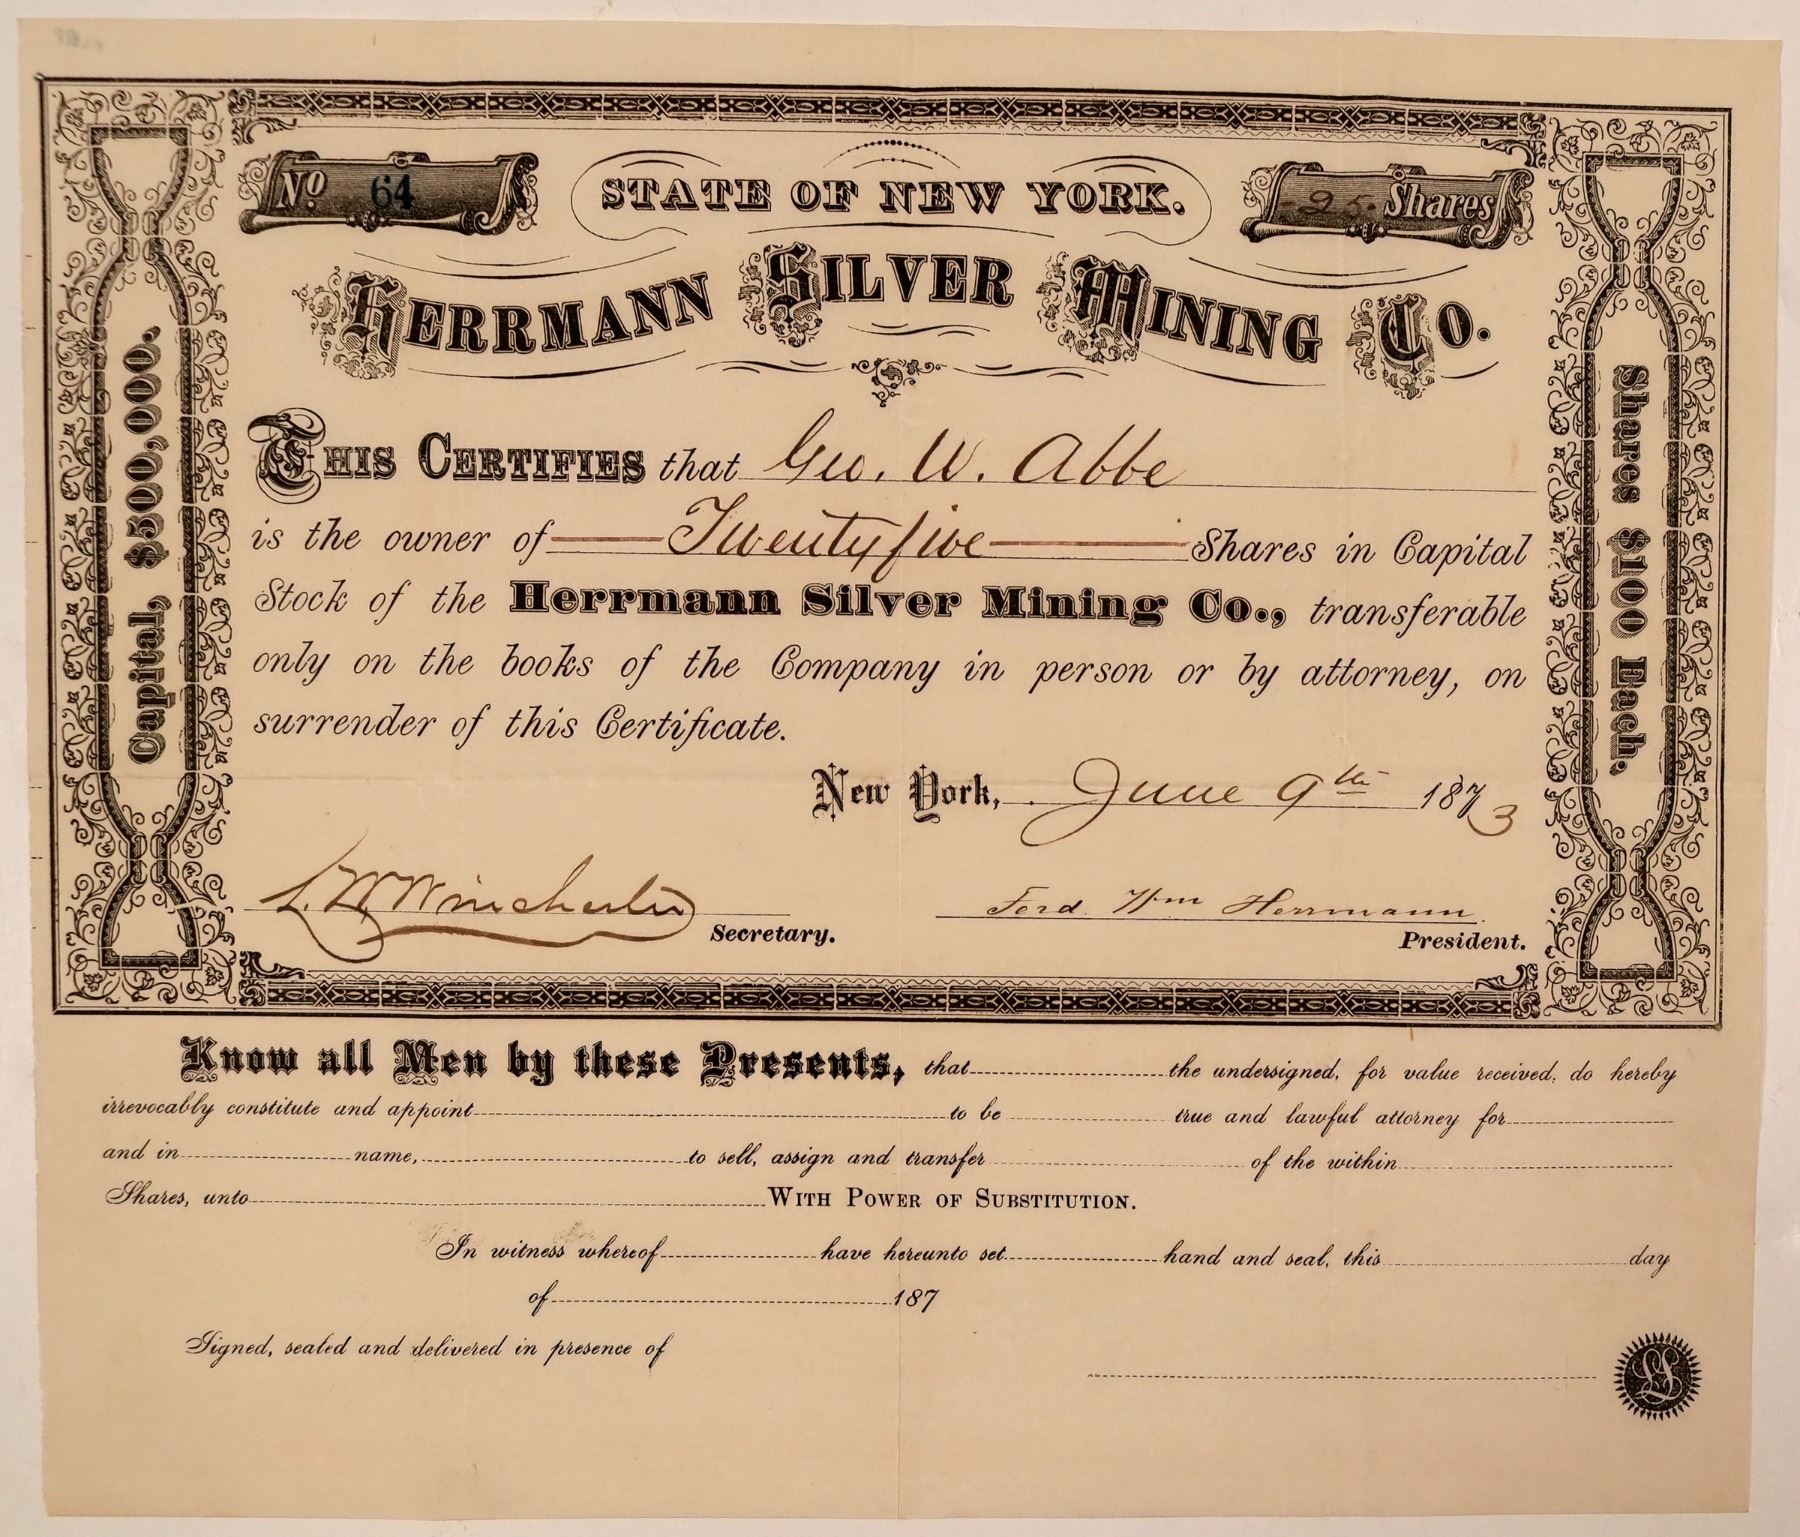 No 64
STATE OF NEW YORK.
25. Shares
HERRMANN SILVER MINING CO.
Capital, $500,000.
Shares $100 Each.
THIS CERTIFIES that Geo. W. Abbe
is the owner of Twentyfive Shares in Capital
Stock of the Herrmann Silver Mining Co., transferable
only on the books of the Company in person or by attorney, on
surrender of this Certificate.
New York, June 9th 1873
L. W. Winchester
Secretary.
Ferd. Wm Herrmann.
President.
Know all Men by these Presents, that the undersigned, for value received, do hereby
irrevocably constitute and appoint to be true and lawful attorney for
and in name, to sell, assign and transfer of the within
Shares, unto WITH POWER OF SUBSTITUTION.
In witness whereof have hereunto set hand and seal, this day
of 187
Signed, sealed and delivered in presence of
LS